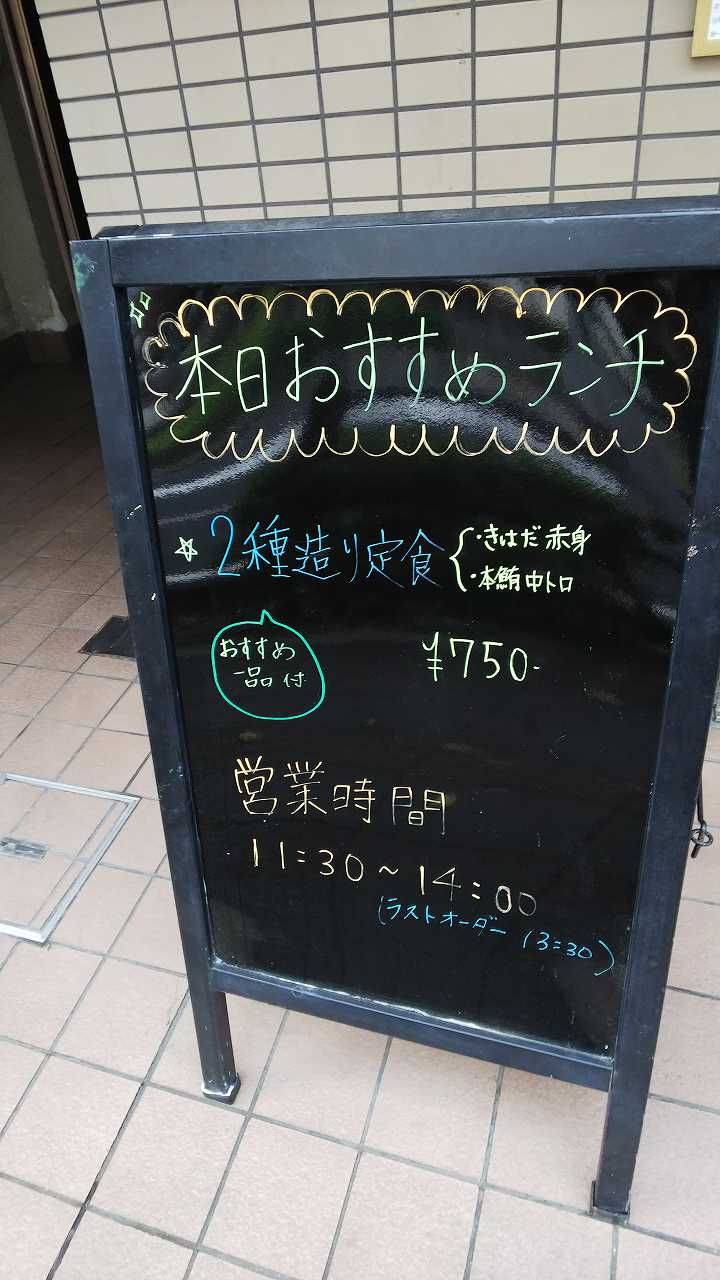 本日おすすめランチ
☆2種造り定食
・きはだ赤身
・本鮪中トロ
おすすめ
一品付
¥750-
営業時間
11:30~14:00
(ラストオーダー 13:30)